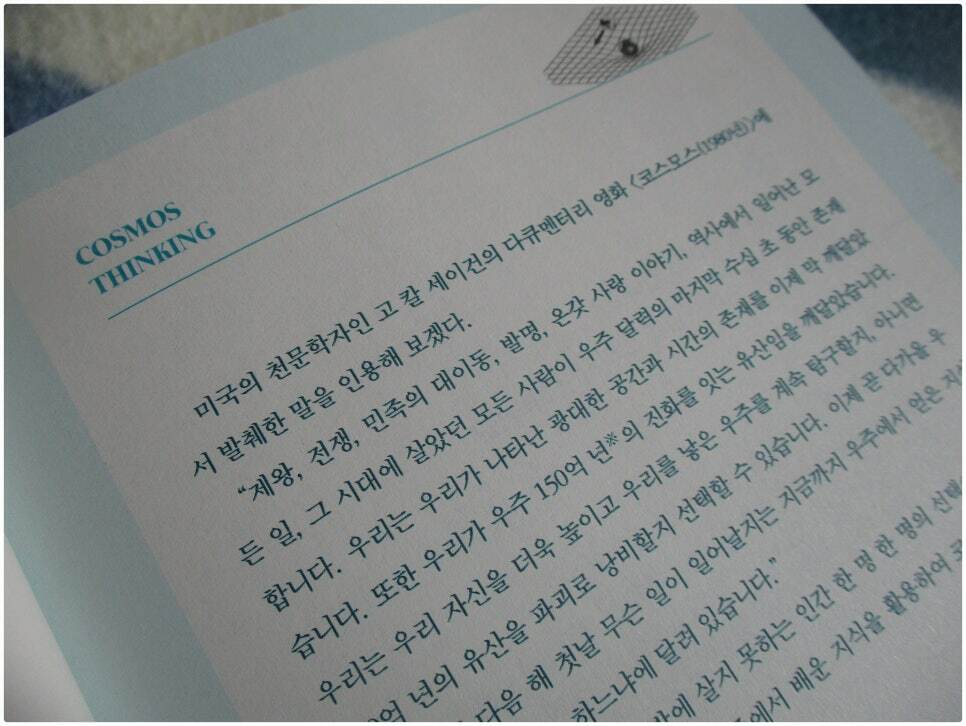 COSMOS
THINKING
미국의 천문학자인 고 칼 세이건의 다큐멘터리 영화 <코스모스(1980년)>에
서 발췌한 말을 인용해 보겠다.
“제왕, 전쟁, 민족의 대이동, 발명, 온갖 사랑 이야기, 역사에서 일어난 모
든 일, 그 시대에 살았던 모든 사람이 우주 달력의 마지막 수십 초 동안 존재
합니다. 우리는 우리가 나타난 광대한 공간과 시간의 존재를 이제 막 깨달았
습니다. 또한 우리가 우주 150억 년※의 진화를 잇는 유산임을 깨달았습니다.
우리는 우리 자신을 더욱 높이고 우리를 낳은 우주를 계속 탐구할지, 아니면
억 년의 유산을 파괴로 낭비할지 선택할 수 있습니다. 이제 곧 다가올 우
다음 해 첫날 무슨 일이 일어날지는 지금까지 우주에서 얻은
하느냐에 달려 있습니다.”
살지 못하는 인간 한 명 한 명의
배운 지식을 활용하여